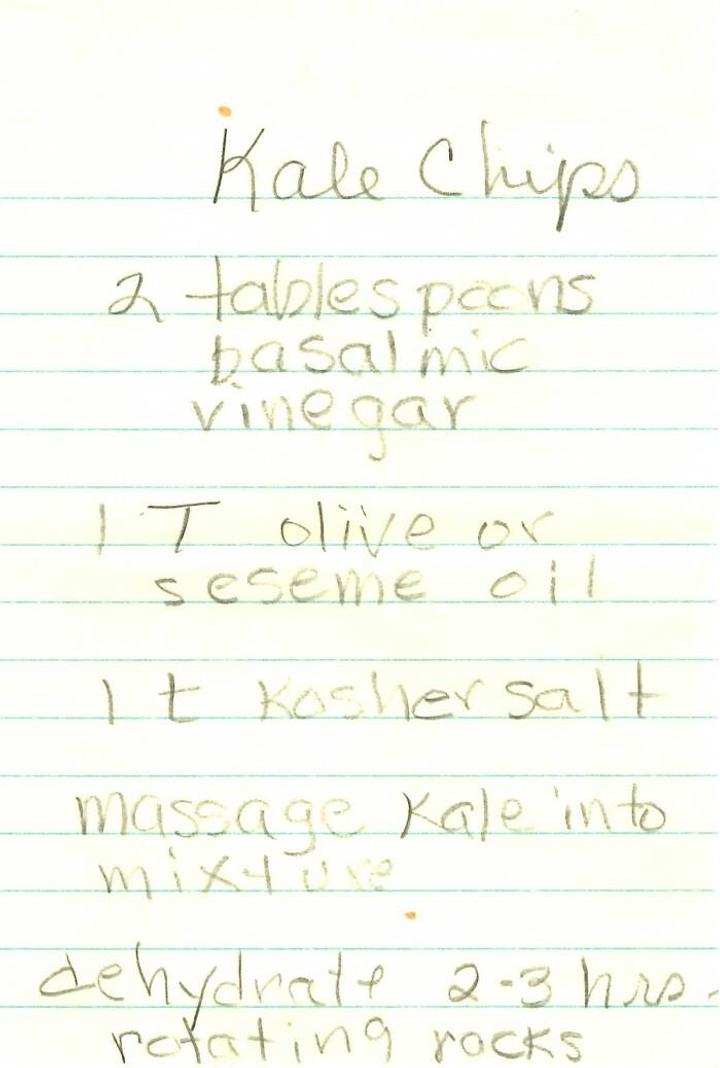 Kale Chips
2 tablespoons
basalmic
vinegar
1 T olive or
seseme oil
1 t Kosher salt
massage Kale into
mixture
dehydrate 2-3 hrs.
rotating rocks